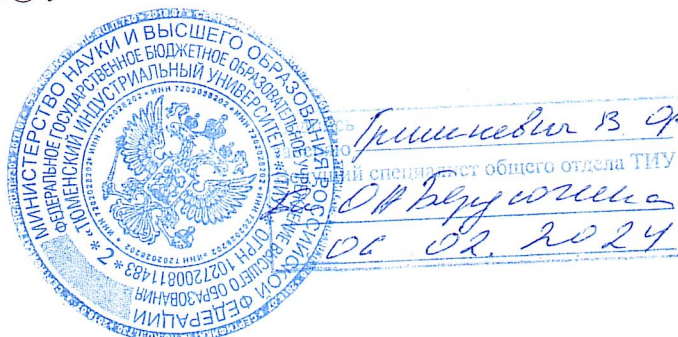 МИНИСТЕРСТВО НАУКИ И ВЫСШЕГО ОБРАЗОВАНИЯ РОССИЙСКОЙ ФЕДЕРАЦИИ
ФЕДЕРАЛЬНОЕ ГОСУДАРСТВЕННОЕ БЮДЖЕТНОЕ ОБРАЗОВАТЕЛЬНОЕ УЧРЕЖДЕНИЕ ВЫСШЕГО ОБРАЗОВАНИЯ
«ТЮМЕНСКИЙ ИНДУСТРИАЛЬНЫЙ УНИВЕРСИТЕТ»
ОГРН 1027200811483 * 2 *
* ИНН 7202028202 * ИНН 7202028202 * ИНН 7202028202
Гришкевич В.
специалист общего отдела ТИУ
06 02. 2024